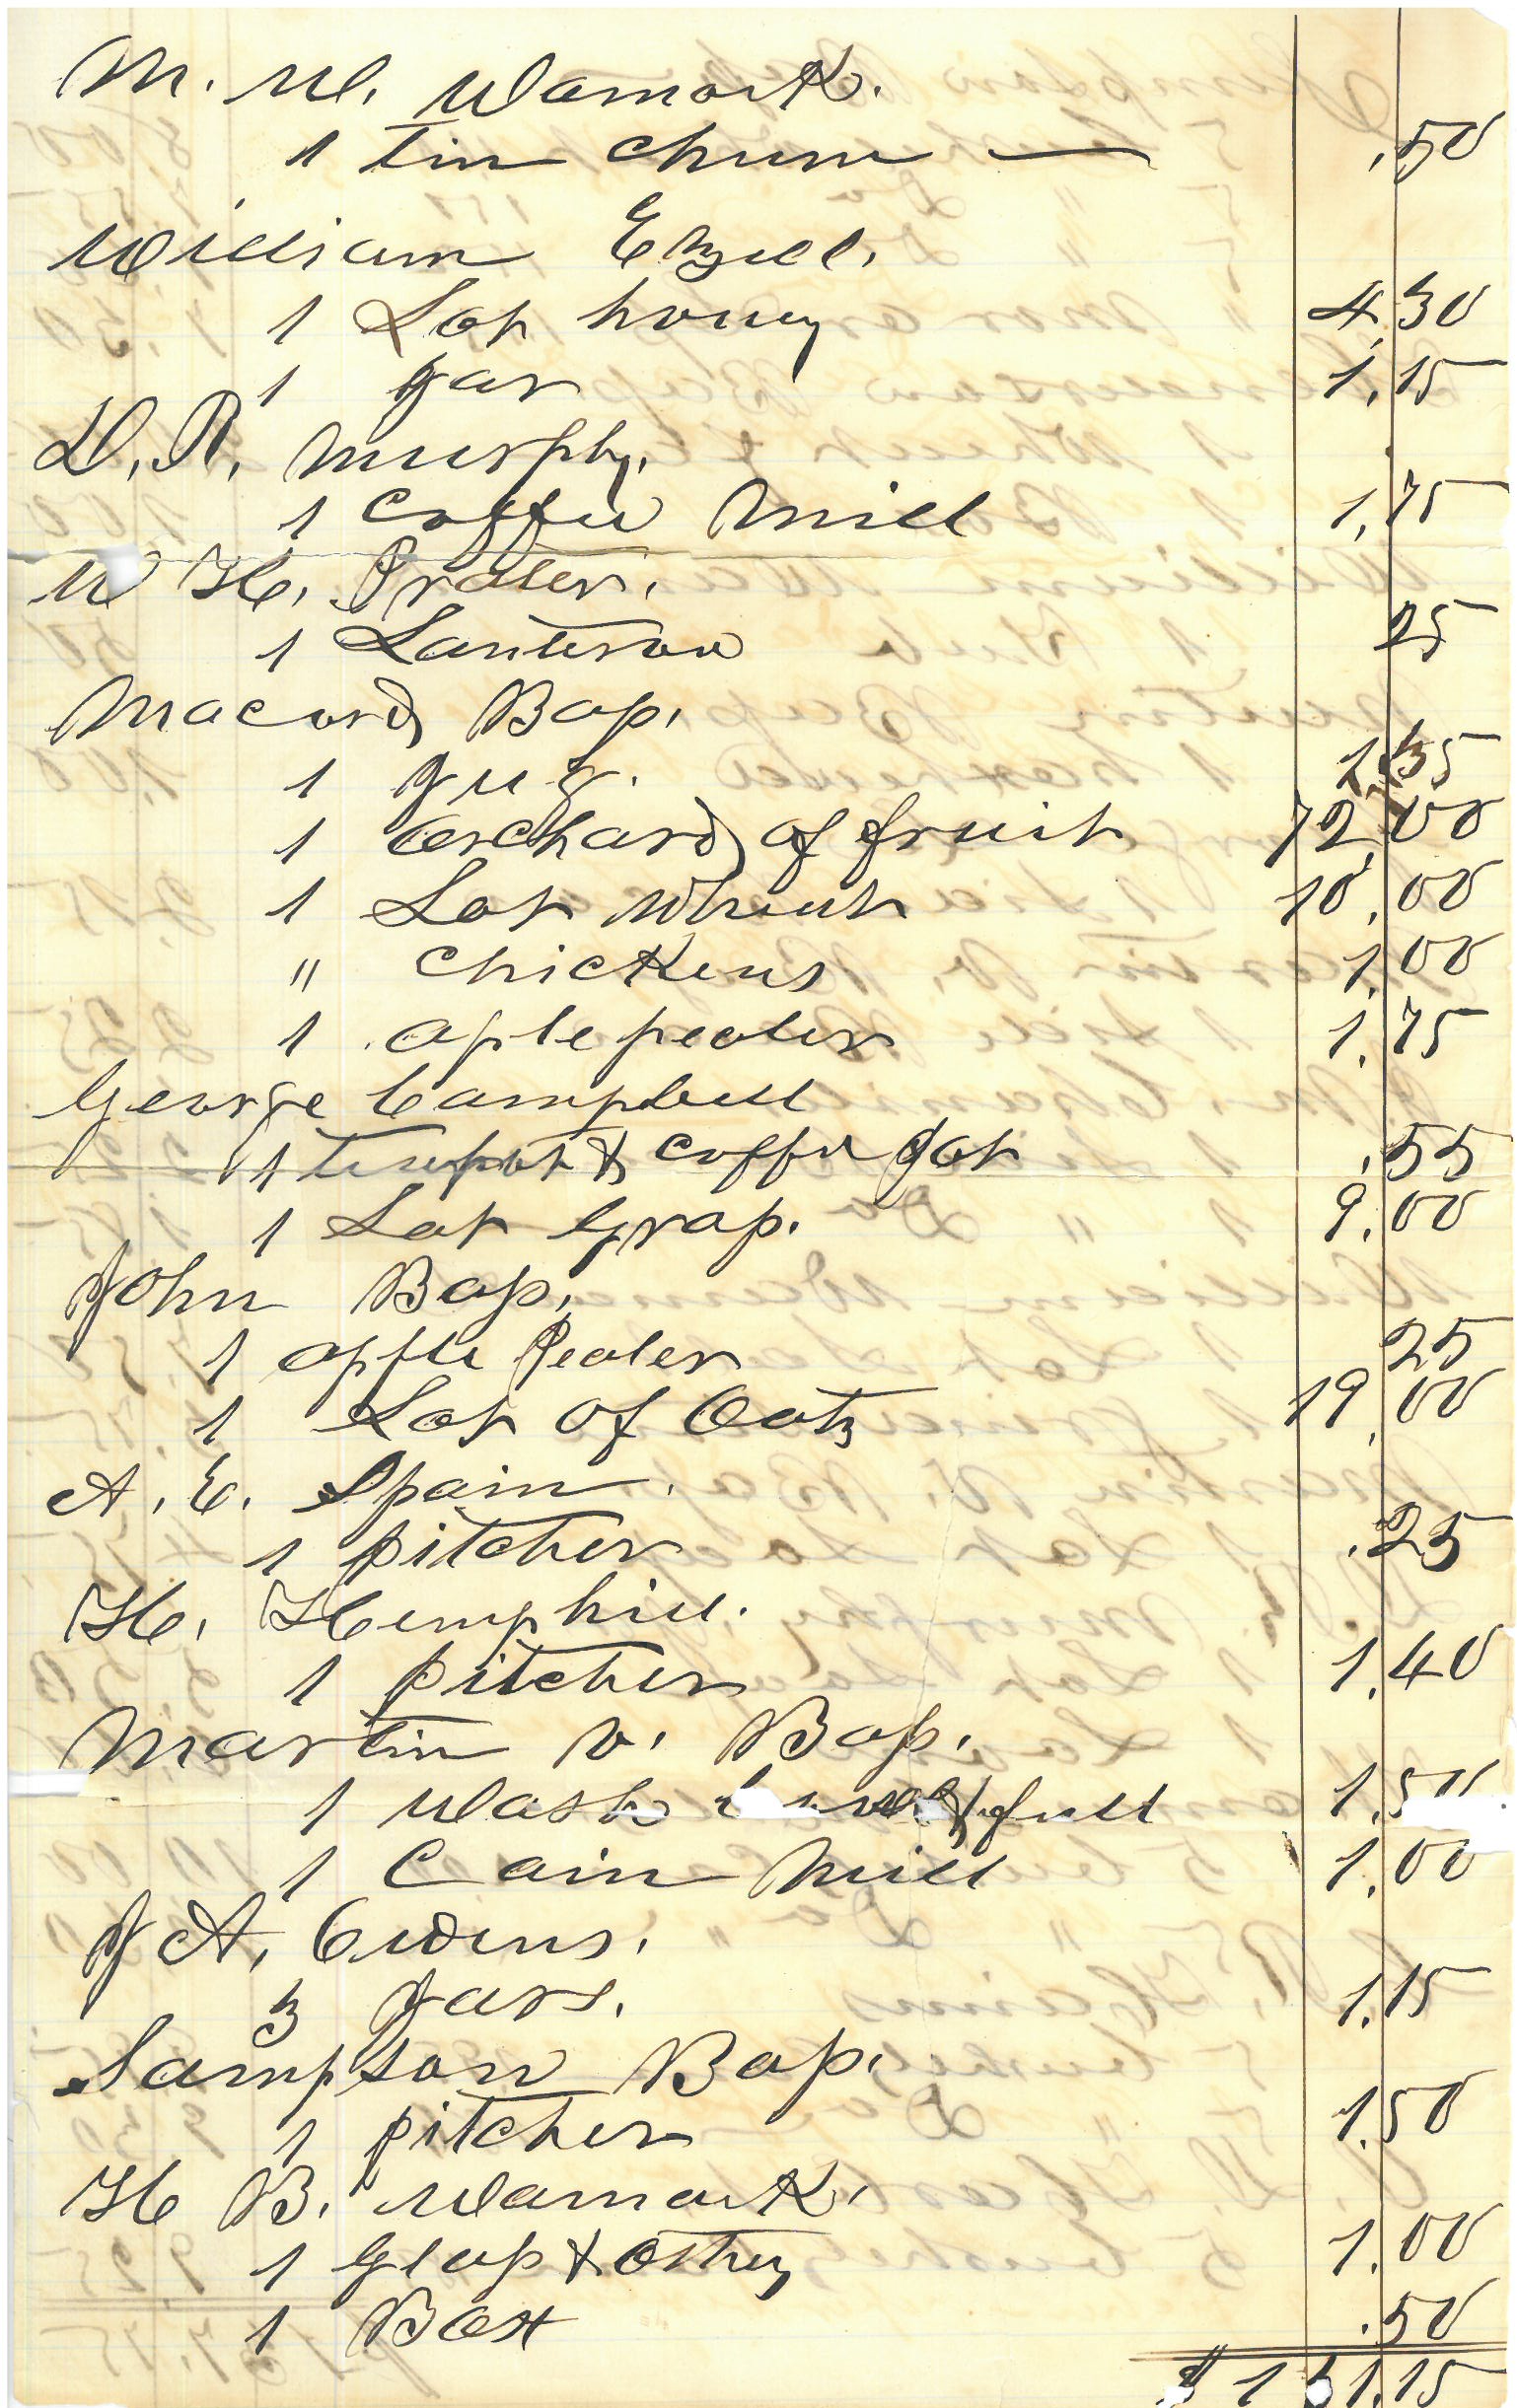 M. W. Wamark.
1 Tin churn — .50
William Ezell.
1 Lot honey 4.30
1 gar 1.15
D. R. Murphy.
1 Coffee Mill 1.75
W H. Prater.
1 Lantern 25
Macord Bass.
1 gug.
1 Orchard of fruit 72.00
1 Lot Wheat 10.00
" chickens 1.00
1 aple pealer 1.75
George Campbell
1 teapot & coffee pot .55
1 Lot Grass. 9.00
John Bass.
1 apple Pealer 25
1 Lot of Oats 19.00
A. E. Spain.
1 pitcher .25
H. Hemphill.
1 pitcher 1.40
Martin V. Bass.
1 Wash & full 1.50
1 Cain Mill 1.00
J A. Owens.
3 gars. 1.15
Sampson Bass.
1 pitcher 1.50
H B. Wamark.
1 Glass & 1.00
1 Box .50
$ 131.15